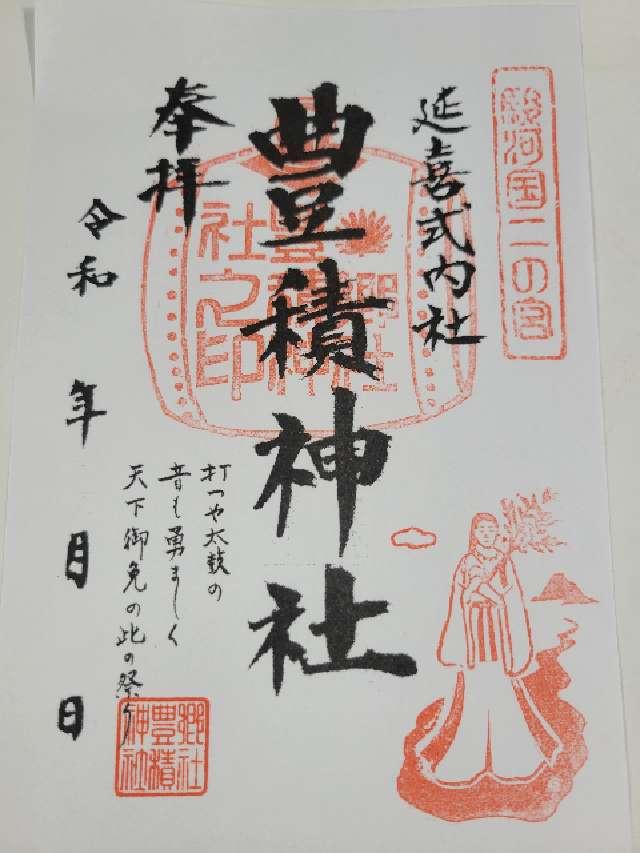 駿河国二の宮
延喜式内社
豊積神社
郷社
豊積神
社之印
奉拝
令和 年 月 日
打つや太鼓の
音も勇ましく
天下御免の此の祭り
郷社
豊積
神社